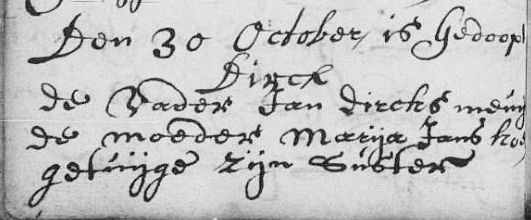 Den 30 October is Gedoop
Dirck
de Vader Jan Dircks meuij
de moeder Marija Jans
getuijge zijn suster